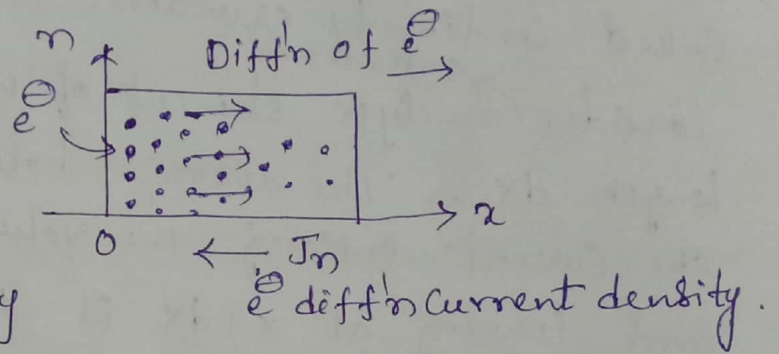 n
Diff'n of e⊖
e⊖
x
0
Jn
y
e⊖ diff'n current density.